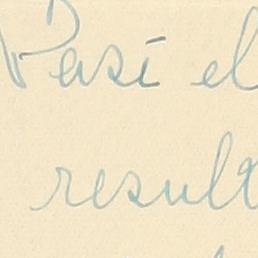 Pasé el
result